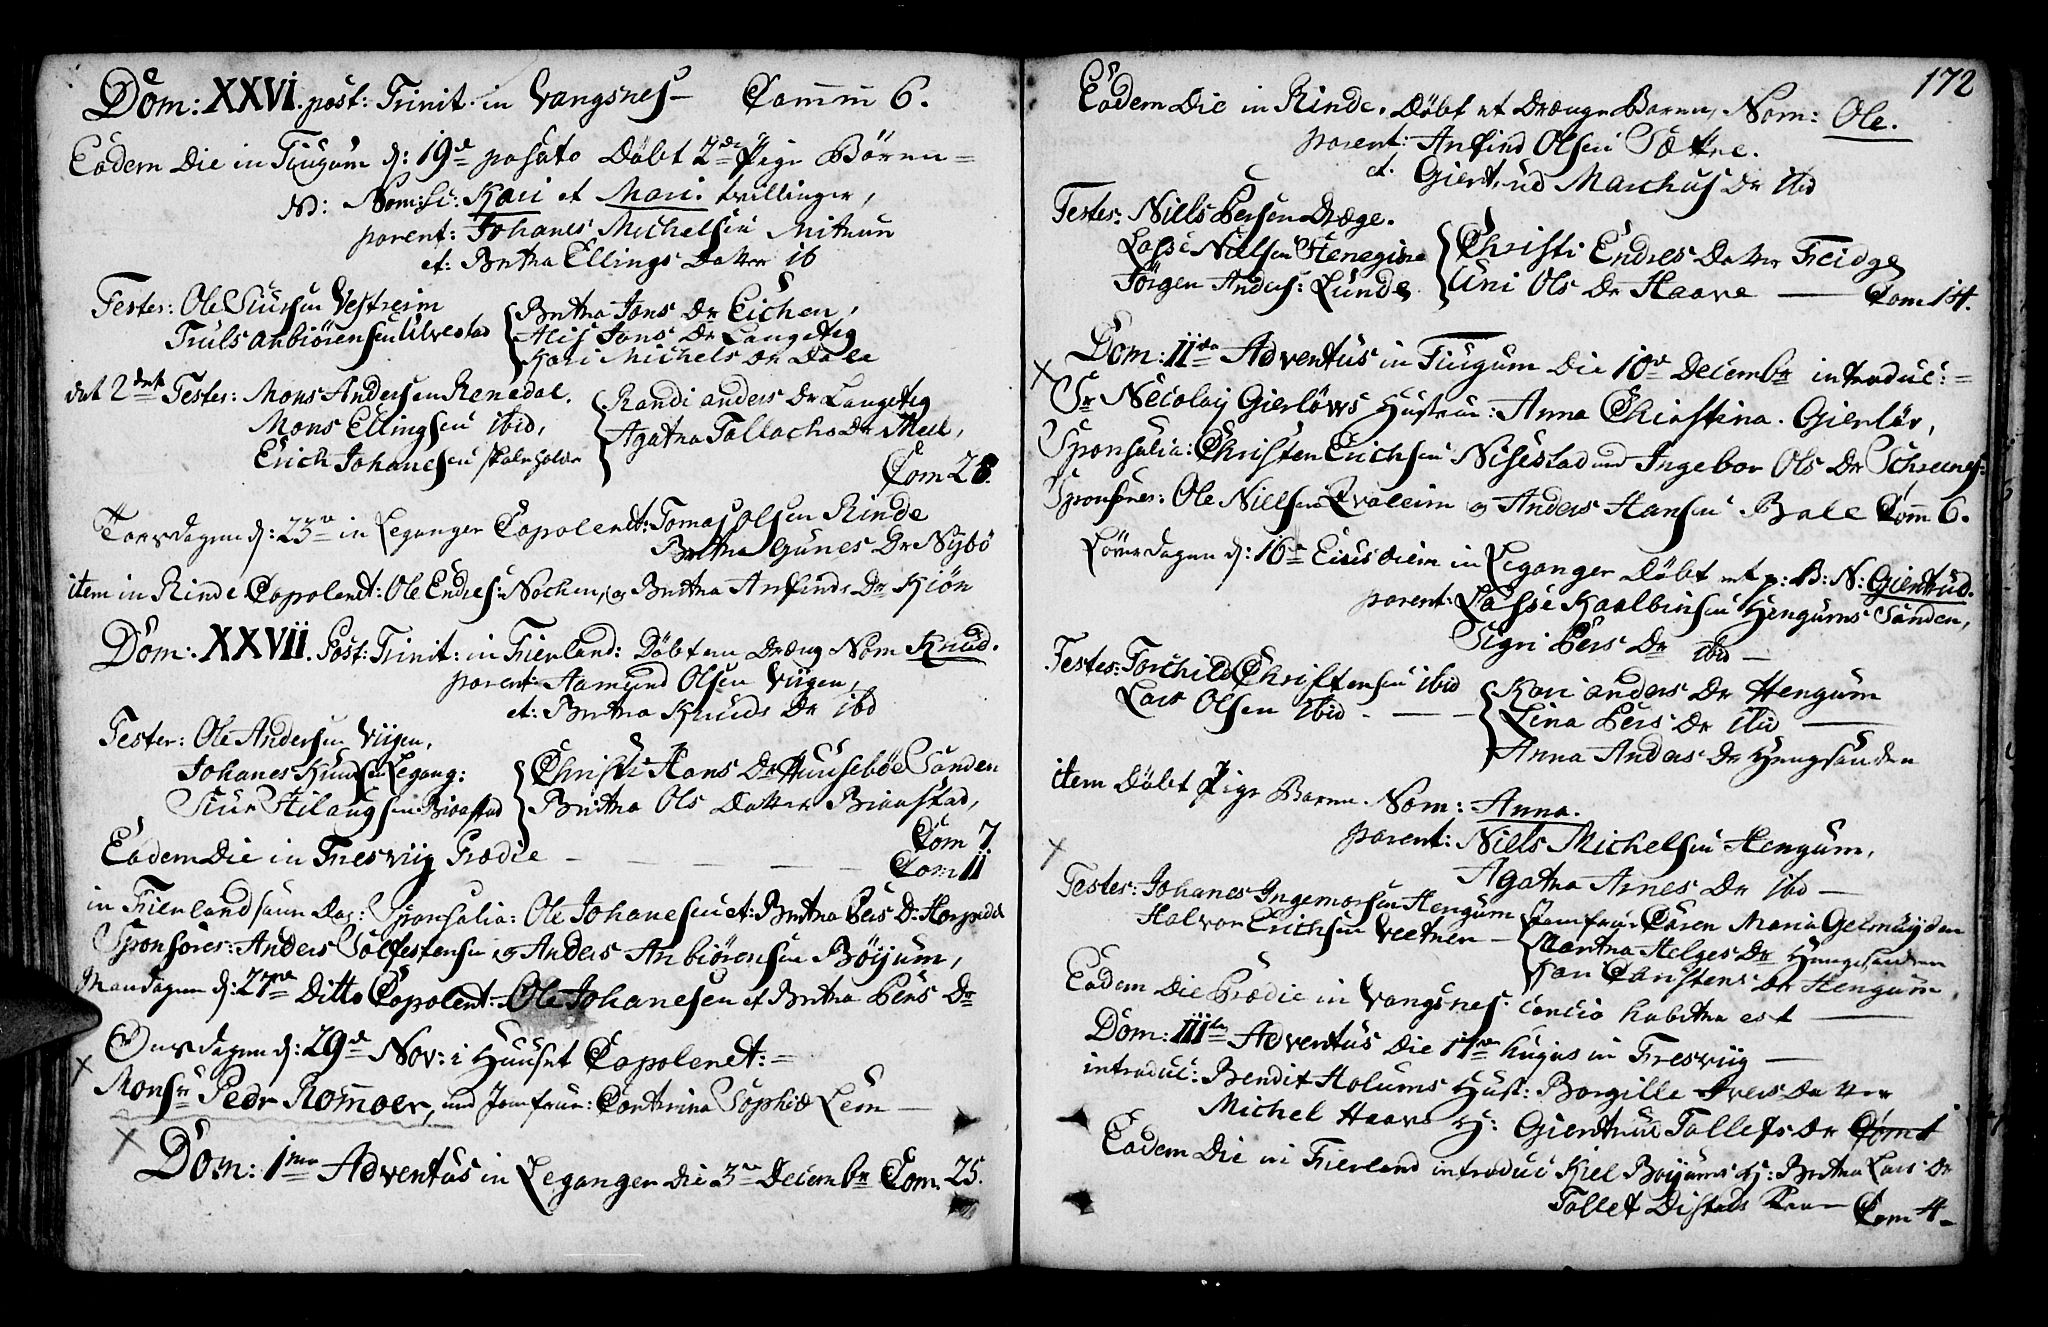 Dom: XXVI. post: Trinit. in Vangsnes – Comm 6.
Eadem Die in Tiugum d: 19de passato Döbt 2de Pige Börn =
Nom: Sc: Kari et Mari. tvillinger,
parent: Johanes Michelsen
et: Britha Ellings Datter ib
Testes: Ole Siursen Vestreim
Truls Anbiörensen Ulvestad
Britha Jons Dr Eichen,
Alis Jons Dr Langeteg
Kari Michels Dr Dale
det 2det Testes: Mons Andersen Renedal.
Mons Ellingsen ibid,
Erich Johanesen
Randi anders Dr Langeteg
Agatha Tollachs Dr Meel,
Com 28.
Torsdagen d: 23de in Leganger Copoleret: Tomas Olsen Rinde
Britha Gunes Dr Nybö
item in Rinde Copoleret: Ole Endres: Nochen, og Britha Anfinds Dr Kiön
Dom: XXVII. Post: Trinit: in Fierland: Döbt en Dreng Nom Knud.
parent: Aamund Olsen Viigen,
et: Britha Knuds Dr ibd
Testes: Ole Andersen Viigen,
Johanes Knudsen Legang:
Siur Hilaugsen Biaastad
Christi Hans Dr Huuseböe Sanden
Britha Ols Datter Biaastad,
Com 7
Eadem Die in Fresviig Prædic – – – – Com 11
in Fierland samme Dag: Sponsalia: Ole Johanesen et: Britha Pers Dr
Sponsores: Anders Solfestensen og Anders Anbiörensen Böijum,
Mandagen d: 27de Ditto Copolent: Ole Johanesen et Britha Pers Dr
Onsdagen d: 29de Nov: i Huuset Copoleret: =
Monsr Pedr Romoer, und Jomfrue: Contrina Sophie Lem –
Dom: 1ma Adventus in Leganger die 3de Decembr Com. 25.
172
Eadem Die in Rinde. Döbt et Drenge Baren, Nom: Ole.
parent: Anfind Olsen Sætre.
et. Giertrud Marchus Dr ibid
Testes: Niels Persen Dræge.
Lasse Nielsen Stenegine
Jörgen Anders: Lunde
Christi Endres Datter Feidge
Uni Ols Dr Haave – Com 14.
Dom: IIda Adventus in Tiugum Die 10de Decembr introduc: =
Sr Necolaij Gierlöws Hustrue: Anna Christina. Gierlöv,
Sponsalia: Christen Erichsen Nisestad und Ingebor Ols Dr
Sponsores: Ole Nielsen Qvaleim og Anders Hansen Bale Com 6.
Löverdagen d: 16de Eiusdem in Leganger Döbt et p: B: N: Giertrud.
parent: Lasse Kaalbinsen Hengums Sanden,
Sigri Pers Dr ibid –
Testes: Torchild Christensen ibid
Lars Olsen ibid. – – –
Kari anders Dr Hengum
Lina Pers Dr ibid –
Anna Anders Dr Hengsanden
item Döbt Pige Baren. Nom: Anna.
parent: Niels Michelsen Hengum,
Agatha Arnes Dr ibd –
Testes: Johanes Ingemorsen Hengum
Halvor Erichsen –
Jomfrue Caren Maria Gelmuijden
Martha Helges Dr Hengesanden
Kari Carstens Dr Hengum
Eadem Die Prædic in Vangsnes: concio habitna est –
Dom: IIItia Adventus Die 17de hujus in Fresviig –
introduc: Bendix Holums Hust: Borgille Ivers Datter
Michel Haavs H: Giertrud Tollefs Dr Com 1
Eadem Die in Fierland introduc Kiel Boijums H: Britha Lars Dr
Tollef Distads – Com 4 –